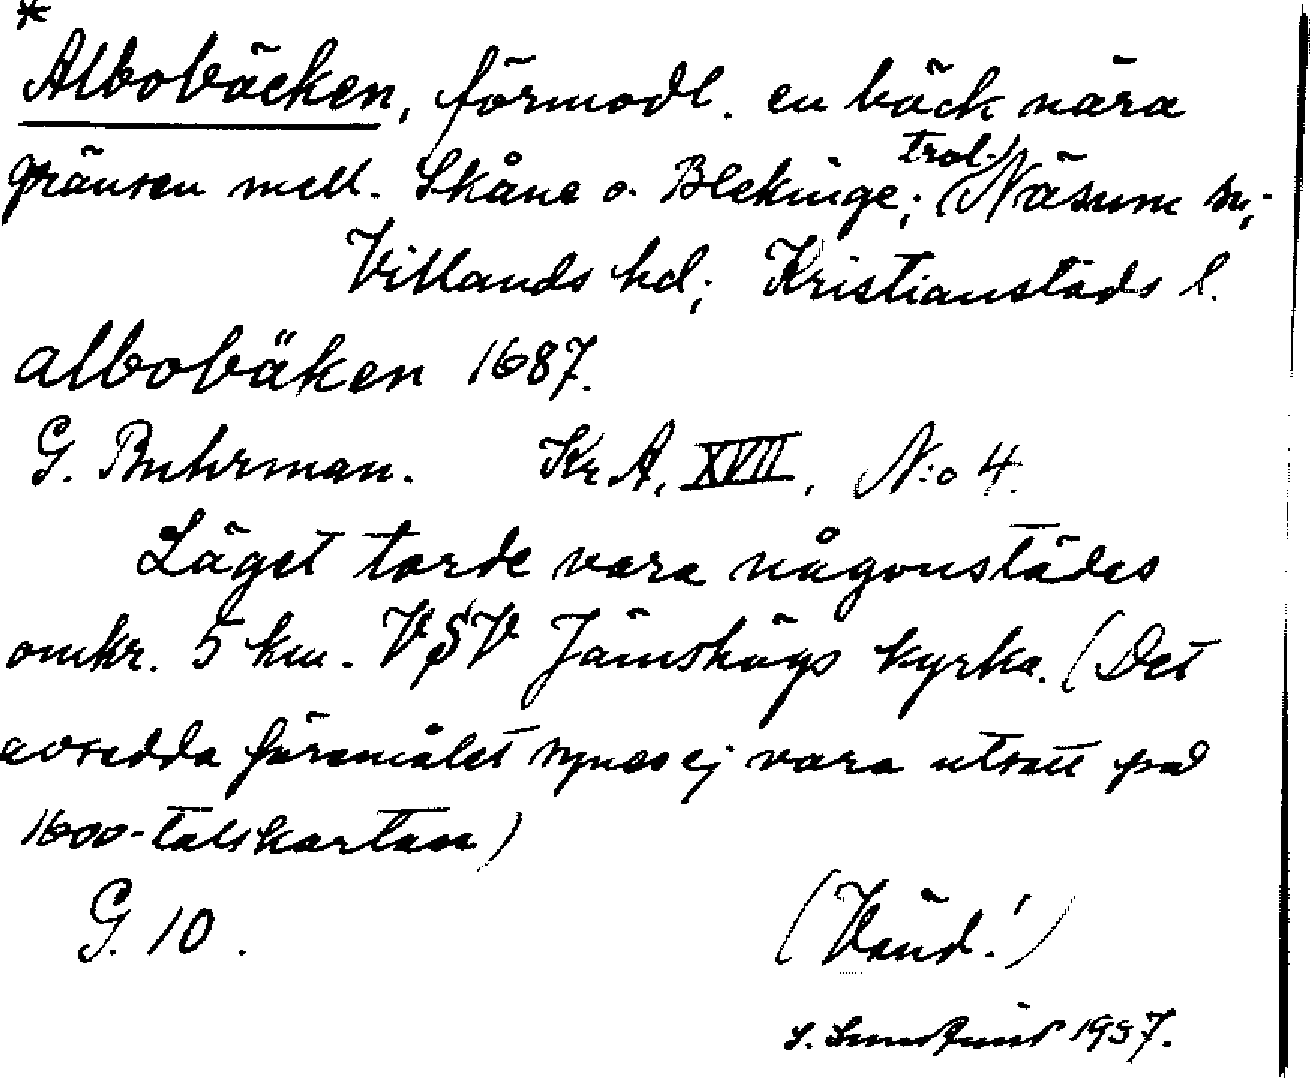 *
Albobäcken, förmodl. en bäck nära
gränsen mell. Skåne o. Blekinge; (trol. Näsum sn,
Villands hd; Kristianstads l.
albobäken 1687.
G. Buhrman. Kr A, XVII, N:o 4.
Läget torde vara någonstädes
omkr. 5 km. VSV Jämshögs kyrka. (Det
avsedda föremålet synes ej vara utsatt på
1600-talskartan)
G. 10.
(Vänd!)
S. 1937.